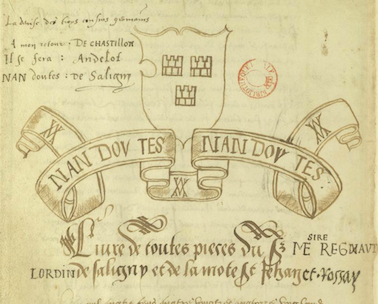 La devise des trois cousins germains
A mon retour : DE CHASTILLON
Il se fera : Andelot
NAN doutes : DE Saligny
XX
XX
NAN DOV TES
NAN DOV TES
XX
SIRE
Livre de toutes pieces du Sr ME REGNAVLT
LORDIN de saligny et de la mote st Jehan et Rossay